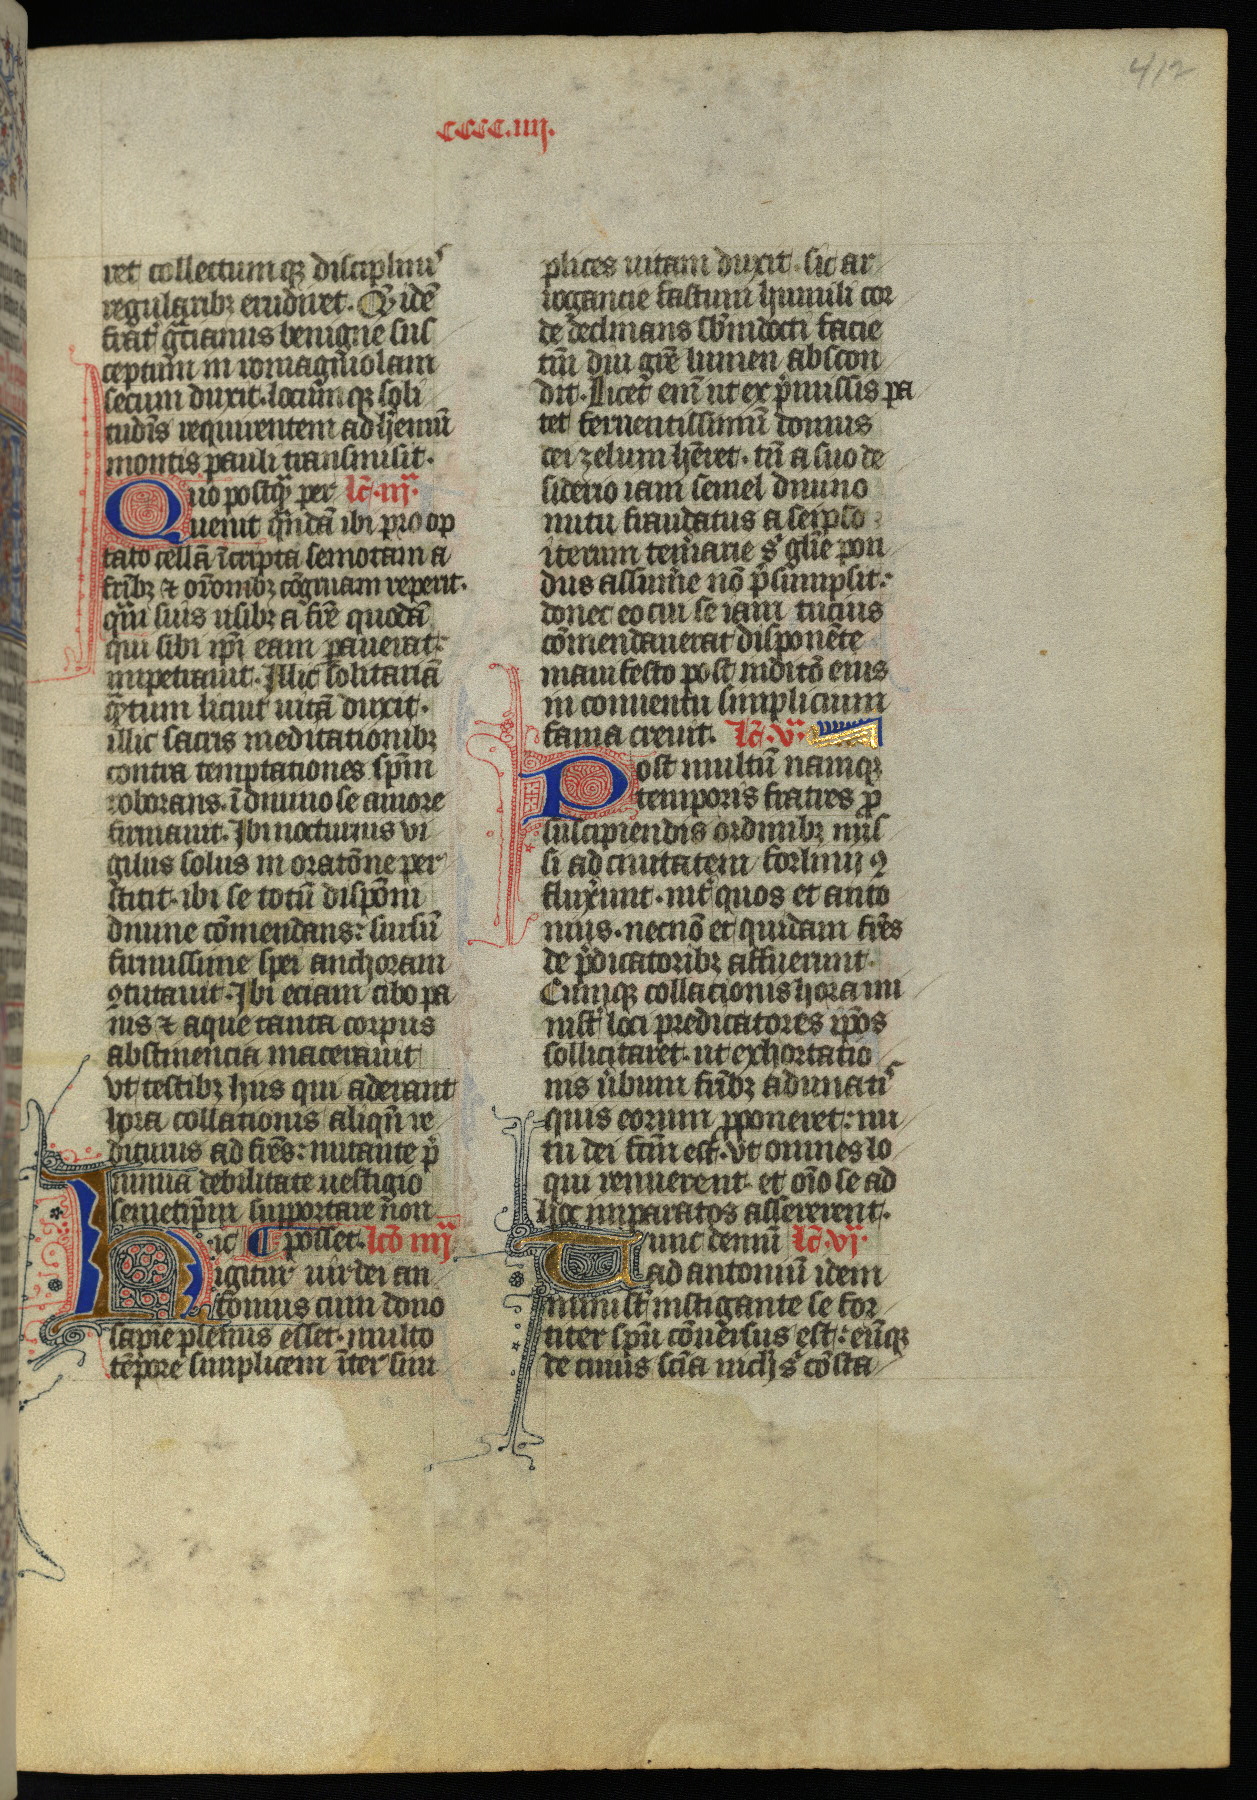 412
cccc.iiij.
ret collectumq; disciplinis
regularib; erudiret. Q̄ idē
frat̄ gͣtianus benigne sus
ceptum in romagniolam
secum duxit. locumq; soli
tudīs requirentem ad heremū
montis pauli transmisit.
Quo postq̄ per lc̄. iij.
uenit q̄ndā ibi pro op
tato cellā ī cripta semotam a
frīb; & ōronib; cōgruam reperit.
q̄m suis usib; a frē quodā
qui sibi ip̄i eam pauerat:
impetrauit. Illic solitariā
q̄tum licuit uitā duxit.
illic sacris meditationib;
contra temptationes sp̄m
roborans. ī diuino se amore
firmauit. Ibi nocturnis vi
giliis solus in oratōne per
stitit. ibi se totū dispōni
diuine cōmendans: sursū
firmissime spei anchoram
9tutauit. Ibi eciam cibo pa
nis & aque tanta corpus
abstinencia macerauit
vt testib; hiis qui aderant
hora collationis aliqn̄ re
diturus ad frēs: nutante p̄
nimia debilitate uestigio
semetip̄m supportare non
ic posset. lcō iiij
igitur uir dei an
tonius cum dono
sapīe plenus esset. multo
tēpore simplicem īter sim
plices uitam duxit. sic ar
rogancie fastum humili cor
de declinans sb̄ indocti facie
tm̄ diu grē lumen abscon
dit. Licet em̄ ut ex p̄missis pa
tet feruentissimū domus
dei zelum hēret. tn̄ a suo de
siderio iam semel diuino
nutu fraudatus a seipso
iterum temerarie sͣ gl̄ie pon
dus assumere nō p̄sumpsit:
donec eo cui se iam tucius
cōmendauerat disponēte
manifesto post inditō eius
in conuentu simplicium
fama creuit. lc̄. v.
Post multū namq;
temporis fratres p̄
suscipiendis ordinib; mis
si ad ciuitatem forliuij 9
fluxerunt. int̄ quos et anto
nius. necnō et quidam frēs
de p̄dicatorib; affuerunt.
Cumq; collacionis hora mi
nist̄ loci predicatores ip̄os
sollicitaret. ut exhortatio
nis ūbum frīb; adunatis
quis eorum p̄poneret: nu
tu dei fc̄m est. vt omnes lo
qui renuerent. et ōīo se ad
hoc imparatos assererent.
Tunc demū lc̄. vj.
ad antoniū idem
minist̄ instigante se for
titer sp̄u cōuersus est: eūq;
de cuius sciā nichil sͣ cōsta